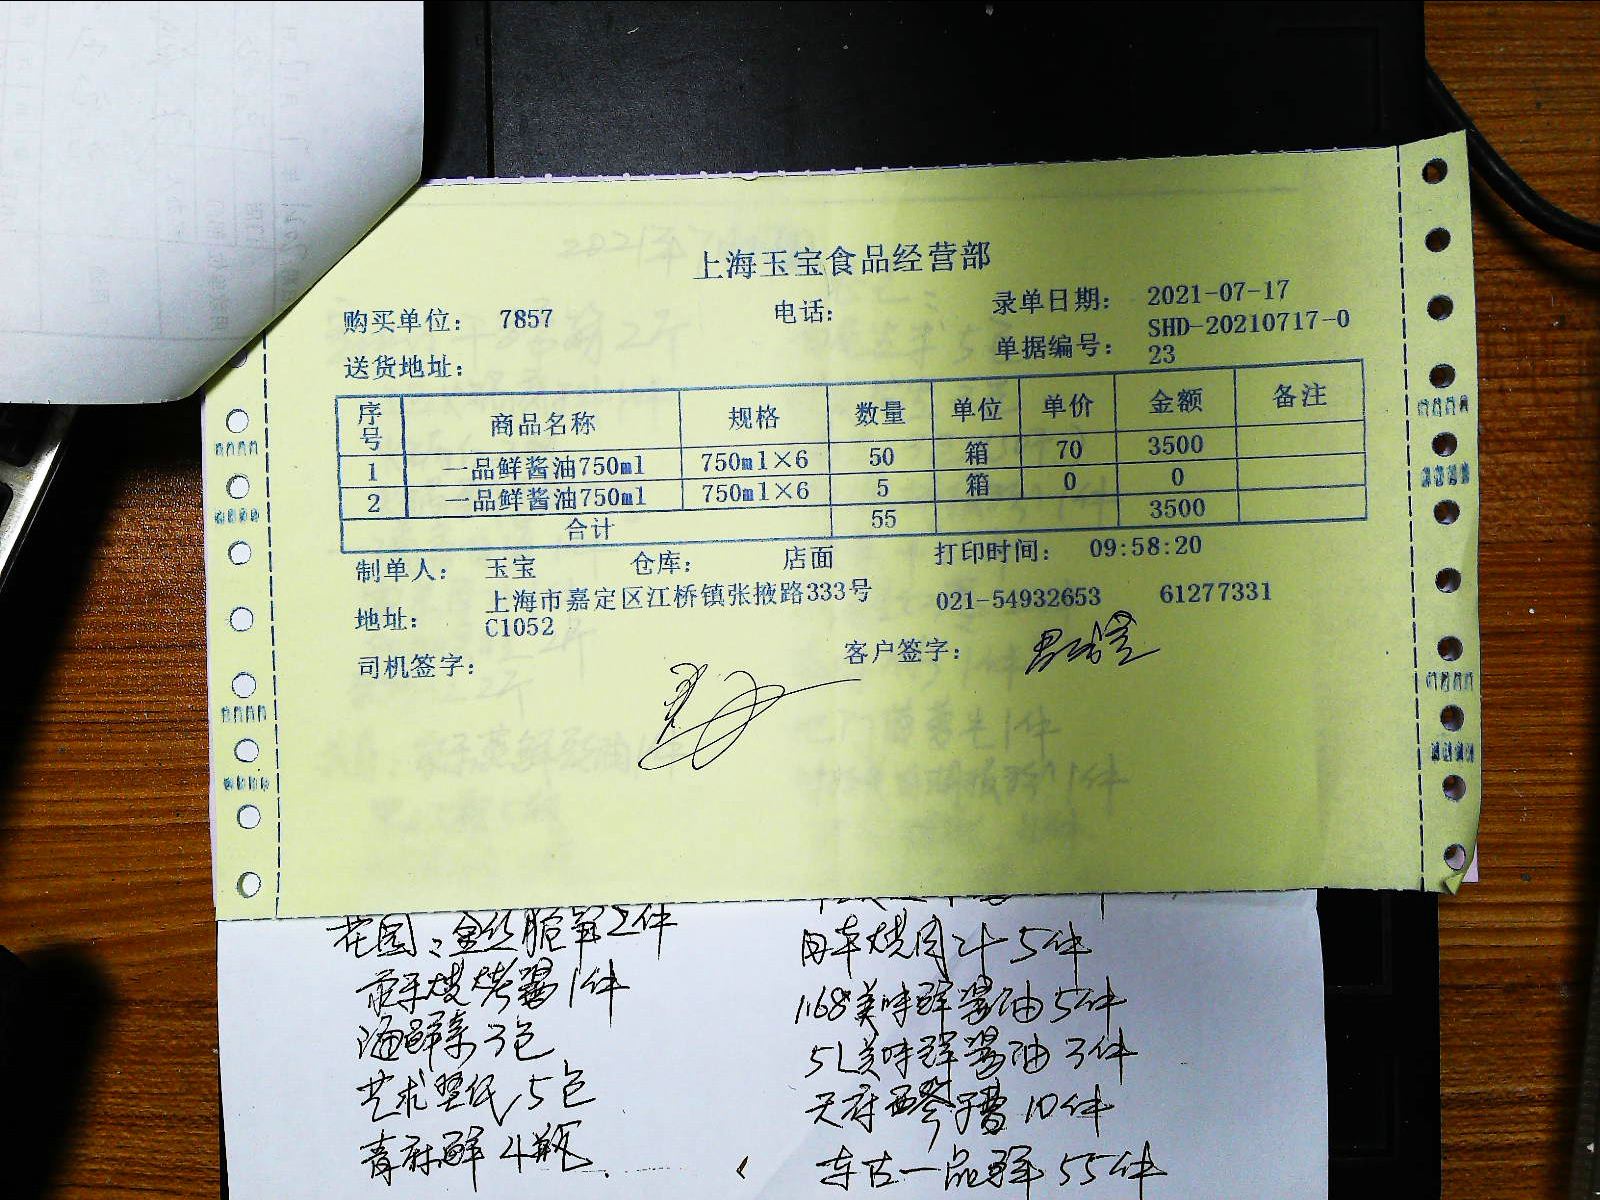 上海玉宝食品经营部
购买单位： 7857 电话： 录单日期： 2021-07-17
送货地址： 单据编号： SHD-20210717-023
序号 商品名称 规格 数量 单位 单价 金额 备注
1 一品鲜酱油750ml 750ml×6 50 箱 70 3500
2 一品鲜酱油750ml 750ml×6 5 箱 0 0
合计 55 3500
制单人： 玉宝 仓库： 店面 打印时间： 09:58:20
地址： 上海市嘉定区江桥镇张掖路333号C1052 021-54932653 61277331
司机签字： 客户签字：
花园：金丝脆 2件
烧烤酱1件
海鲜 3包
艺术 纸5包
青 鲜4瓶
烧肉汁5件
1.68美味鲜酱油5件
5L美味鲜酱油3件
天府 10件
东古一品鲜55件